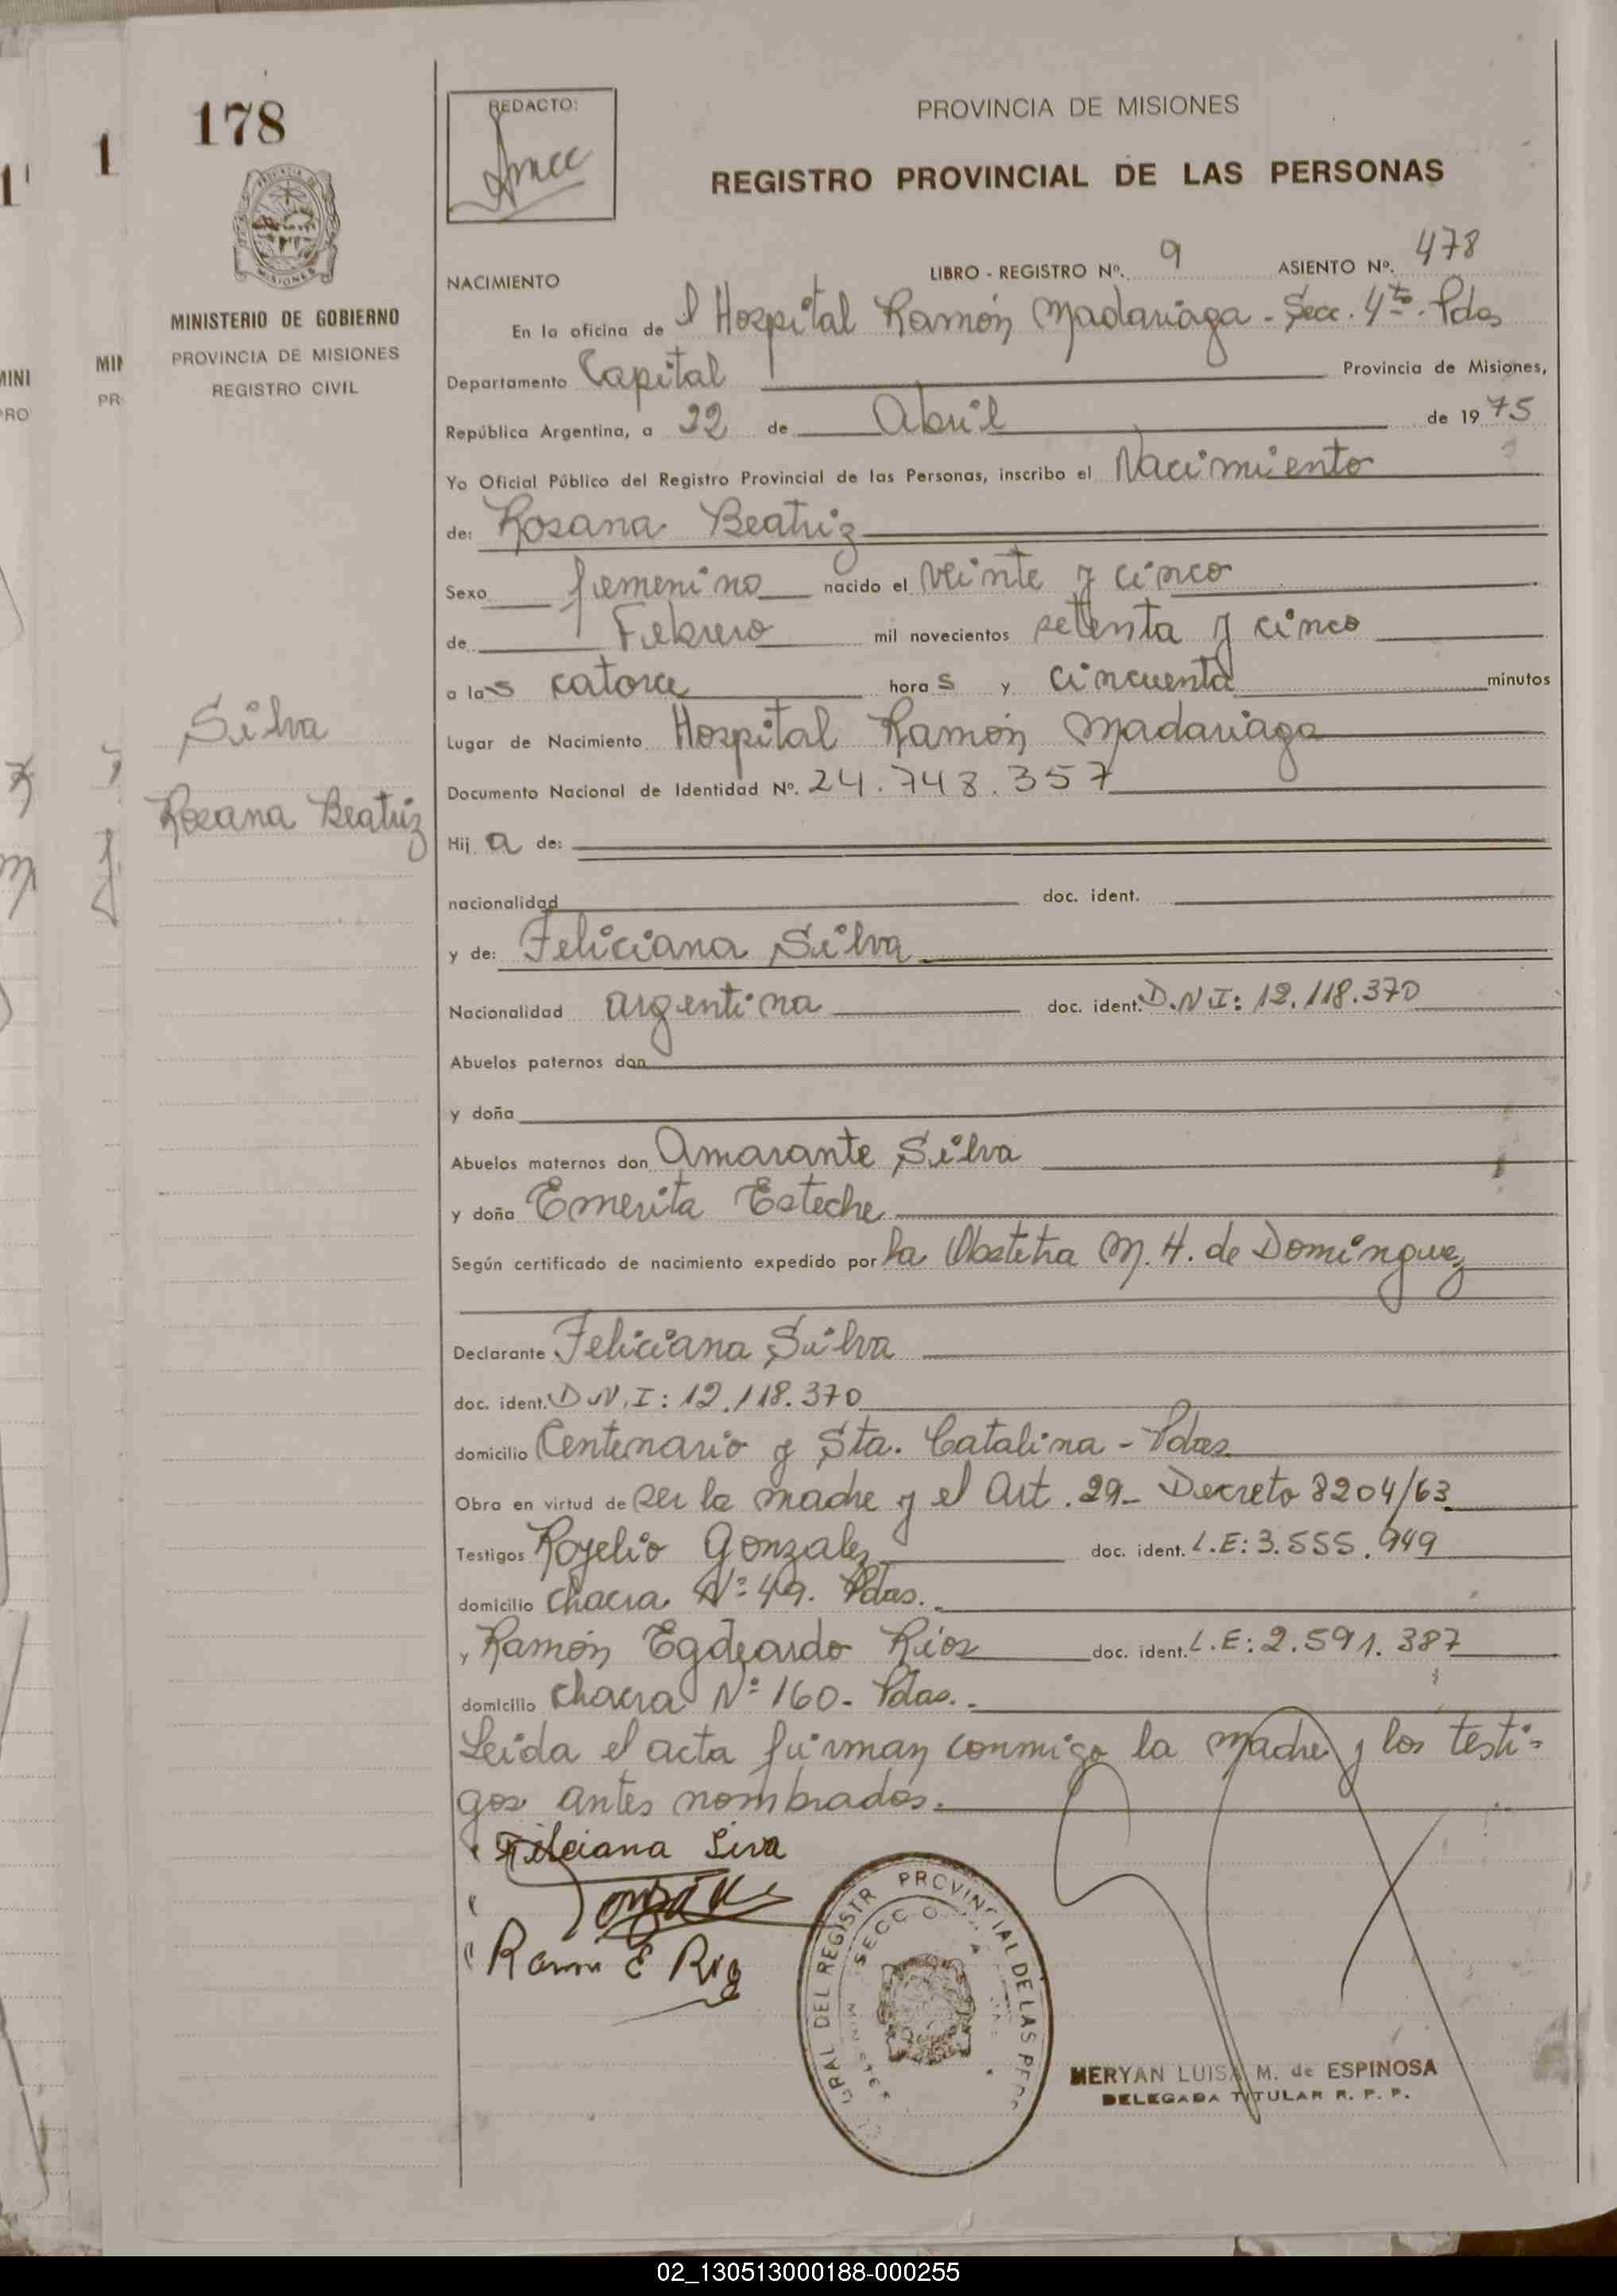 178
PROVINCIA DE MISIONES
MINISTERIO DE GOBIERNO
PROVINCIA DE MISIONES
REGISTRO CIVIL
Silva
Rosana Beatriz
REDACTO:
PROVINCIA DE MISIONES
REGISTRO PROVINCIAL DE LAS PERSONAS
NACIMIENTO LIBRO - REGISTRO Nº. 9 ASIENTO Nº. 478
En la oficina de l Hospital Ramón Madariaga - Secc. 4ta. Pdas
Departamento Capital Provincia de Misiones,
República Argentina, a 22 de Abril de 1975
Yo Oficial Público del Registro Provincial de las Personas, inscribo el Nacimiento
de: Rosana Beatriz
Sexo femenino nacido el veinte y cinco
de Febrero mil novecientos setenta y cinco
a las catorce horas y cincuenta minutos
Lugar de Nacimiento Hospital Ramón Madariaga
Documento Nacional de Identidad Nº. 24.748.357
Hij a de:
nacionalidad doc. ident.
y de: Feliciana Silva
Nacionalidad argentina doc. ident. D.N.I: 12.118.370
Abuelos paternos don
y doña
Abuelos maternos don Amarante Silva
y doña Emerita Esteche
Según certificado de nacimiento expedido por la Obstetra M. H. de Dominguez
Declarante Feliciana Silva
doc. ident. D.N.I: 12.118.370
domicilio Centenario y Sta. Catalina - Pdas
Obra en virtud de ser la madre y el Art. 29- Decreto 8204/63
Testigos Rogelio Gonzalez doc. ident. L.E: 3.555.949
domicilio chacra Nº 49. Pdas.
y Ramón Egdeardo Ríos doc. ident. L.E: 2.591.387
domicilio chacra Nº 160- Pdas.
Leida el acta firman conmigo la madre y los testi-
gos antes nombrados.
Filciana Siva
Ramon E Rios
MERYAN LUISA M. de ESPINOSA
DELEGADA TITULAR R. P. P.
02_130513000188-000255